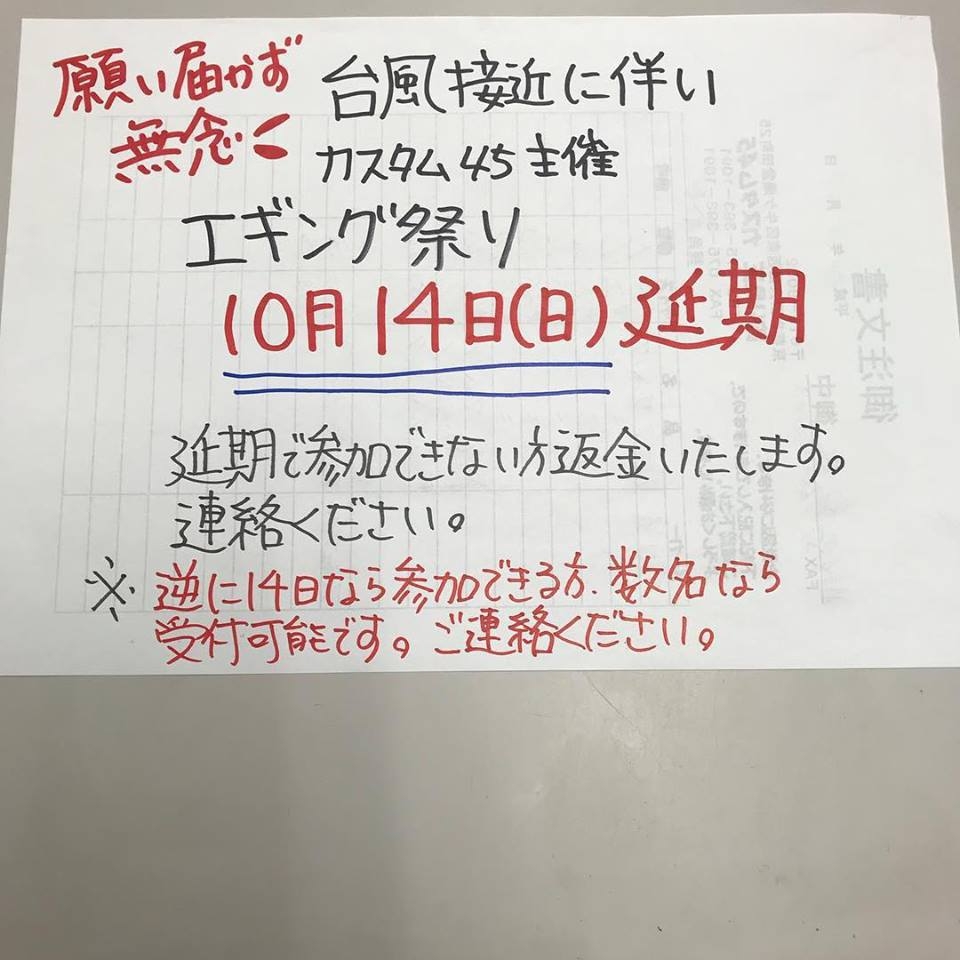 願い届かず
無念
台風接近に伴い
カスタム45主催
エギング祭り
10月14日(日)延期
延期で参加できない方返金いたします。
連絡ください。
※逆に14日なら参加できる方、数名なら
受付可能です。ご連絡ください。